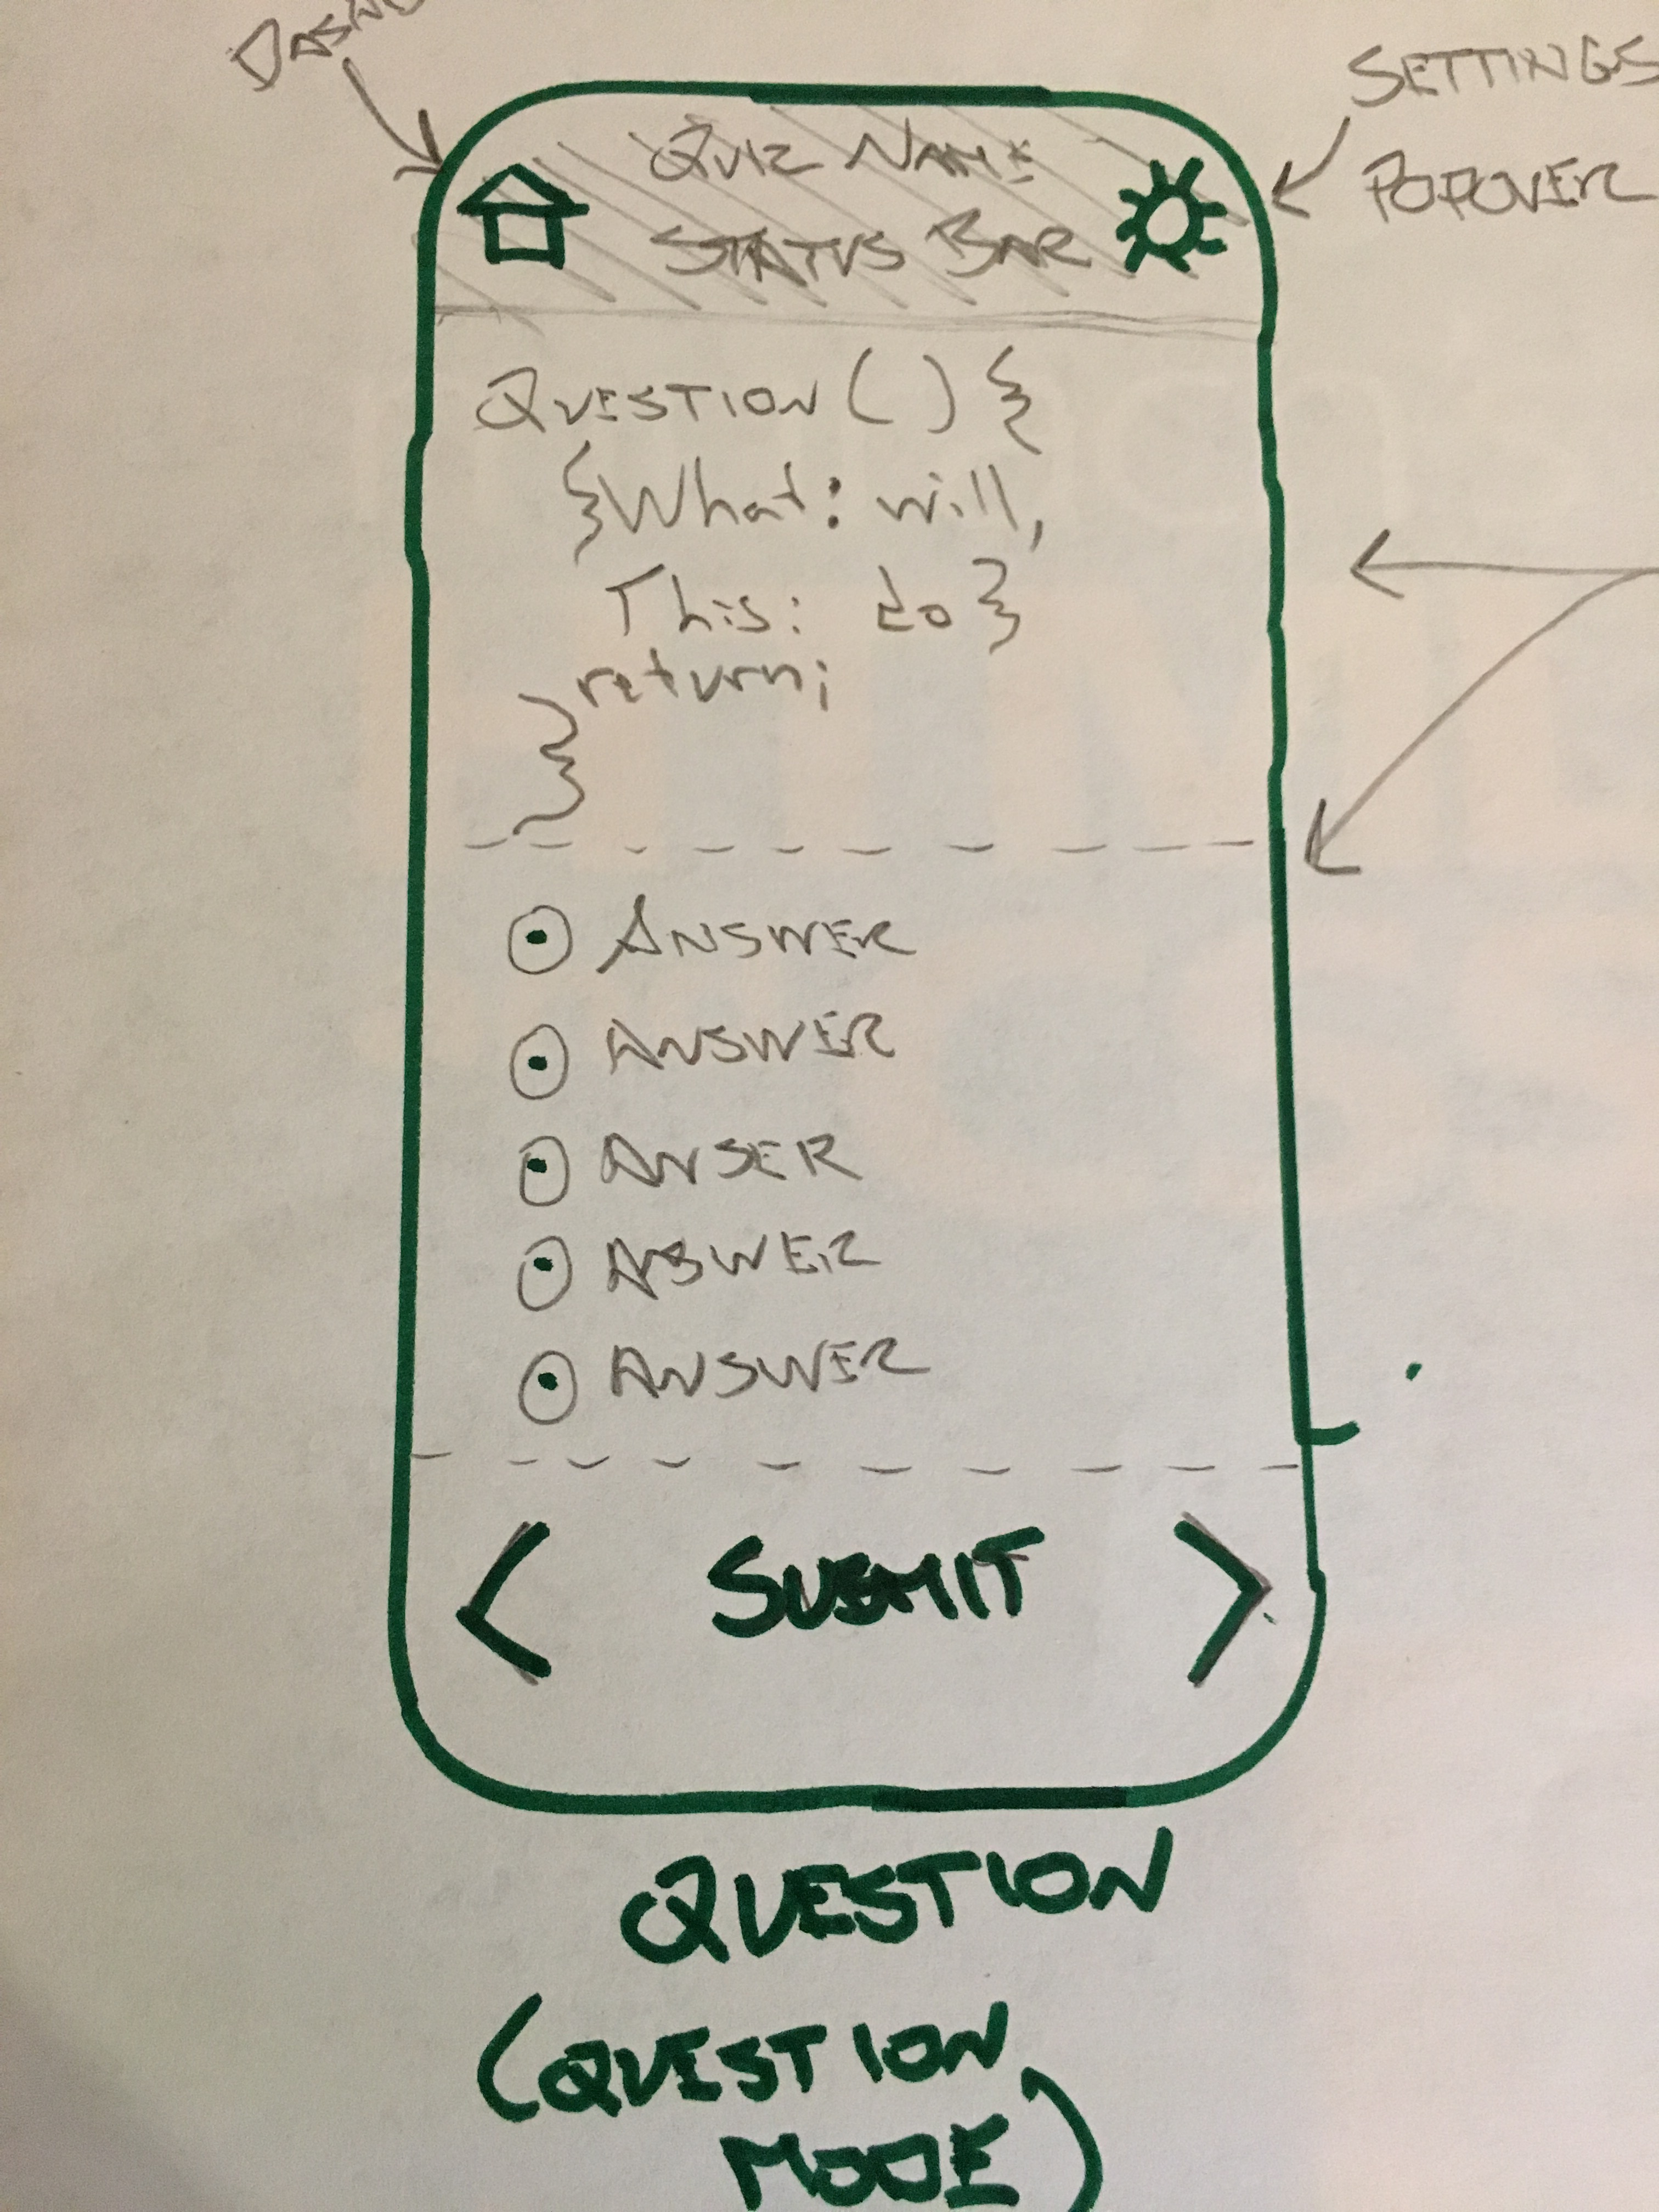 SETTINGS
POPOVER
QUIZ NAME
STATUS BAR
QUESTION () {
{What: will,
This: do}
return;
}
ANSWER
ANSWER
ANSER
ANSWER
ANSWER
< SUBMIT >
QUESTION
(QUESTION
MODE)